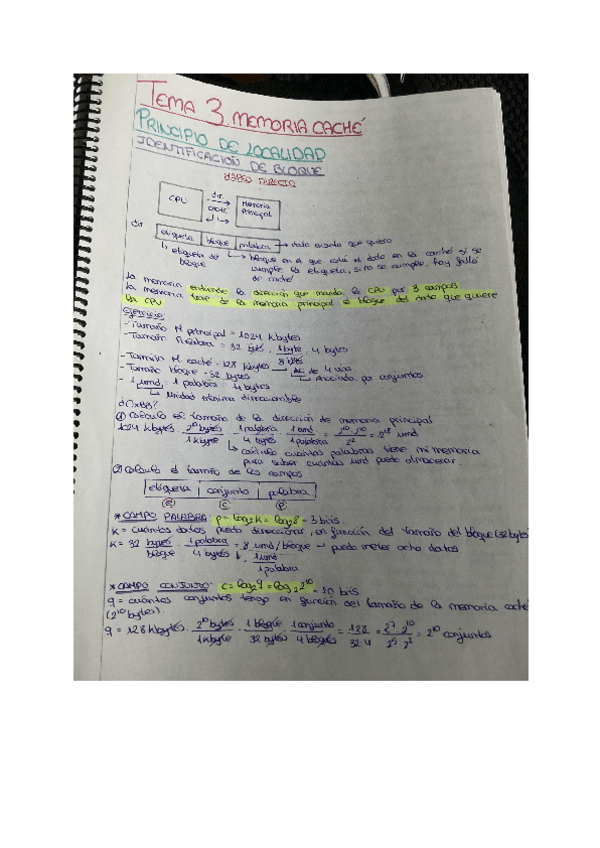 TEMA 3. MEMORIA CACHÉ
PRINCIPIO DE LOCALIDAD
IDENTIFICACIÓN DE BLOQUE
DIRECTO
CPU dir CACHÉ Memoria Principal
dir
etiqueta bloque palabra → dato exacto que quiero
↳ etiqueta de bloque ↳ bloque en el que está el dato en la caché → si se
cumple la etiqueta, si no se cumple, hay fallo
de caché
La memoria entiende la dirección que manda la CPU por 3 campos
La memoria trae de la memoria principal el bloque del dato que quiere
la CPU
Ejercicio:
- Tamaño M principal = 1024 kbytes
- Tamaño Palabra = 32 bits · 1 byte / 8 bits = 4 bytes
- Tamaño M caché = 128 kbytes
- Tamaño bloque = 32 bytes → AC de 4 vías
↳ Asociativa por conjuntos
- 1 umd = 1 palabra = 4 bytes
↳ Unidad mínima direccionable
① Calcula el tamaño de la dirección de memoria principal
1024 kbytes · 2^10 bytes / 1 kbyte · 1 palabra / 4 bytes · 1 umd / 1 palabra = 2^10 · 2^10 / 2^2 = 2^18 umd
↳ cuántas palabras tiene mi memoria
para saber cuántas umd puede almacenar
② Calcula el tamaño de los campos
etiqueta conjunto palabra
E C P
* CAMPO PALABRA: P = log2 K = log2 8 = 3 bits
K = cuántos datos puedo direccionar, en función del tamaño del bloque (32 bytes)
K = 32 bytes / bloque · 1 palabra / 4 bytes · 1 umd / 1 palabra = 8 umd/bloque → puedo meter ocho datos
* CAMPO CONJUNTO: C = log2 q = log2 2^10 = 10 bits
q = cuántos conjuntos tengo en función del tamaño de la memoria caché
(2^10 bytes).
q = 128 kbytes · 2^10 bytes / 1 kbyte · 1 bloque / 32 bytes · 1 conjunto / 4 bloques = 128 / 32·4 = 2^7 · 2^10 / 2^5 · 2^2 = 2^10 conjuntos